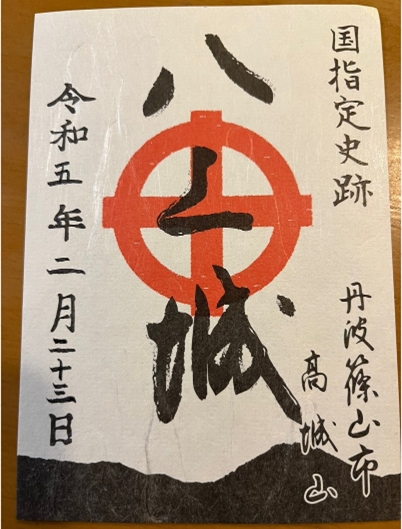 国指定史跡
丹波篠山市
高城山
八上城
令和五年二月二十三日